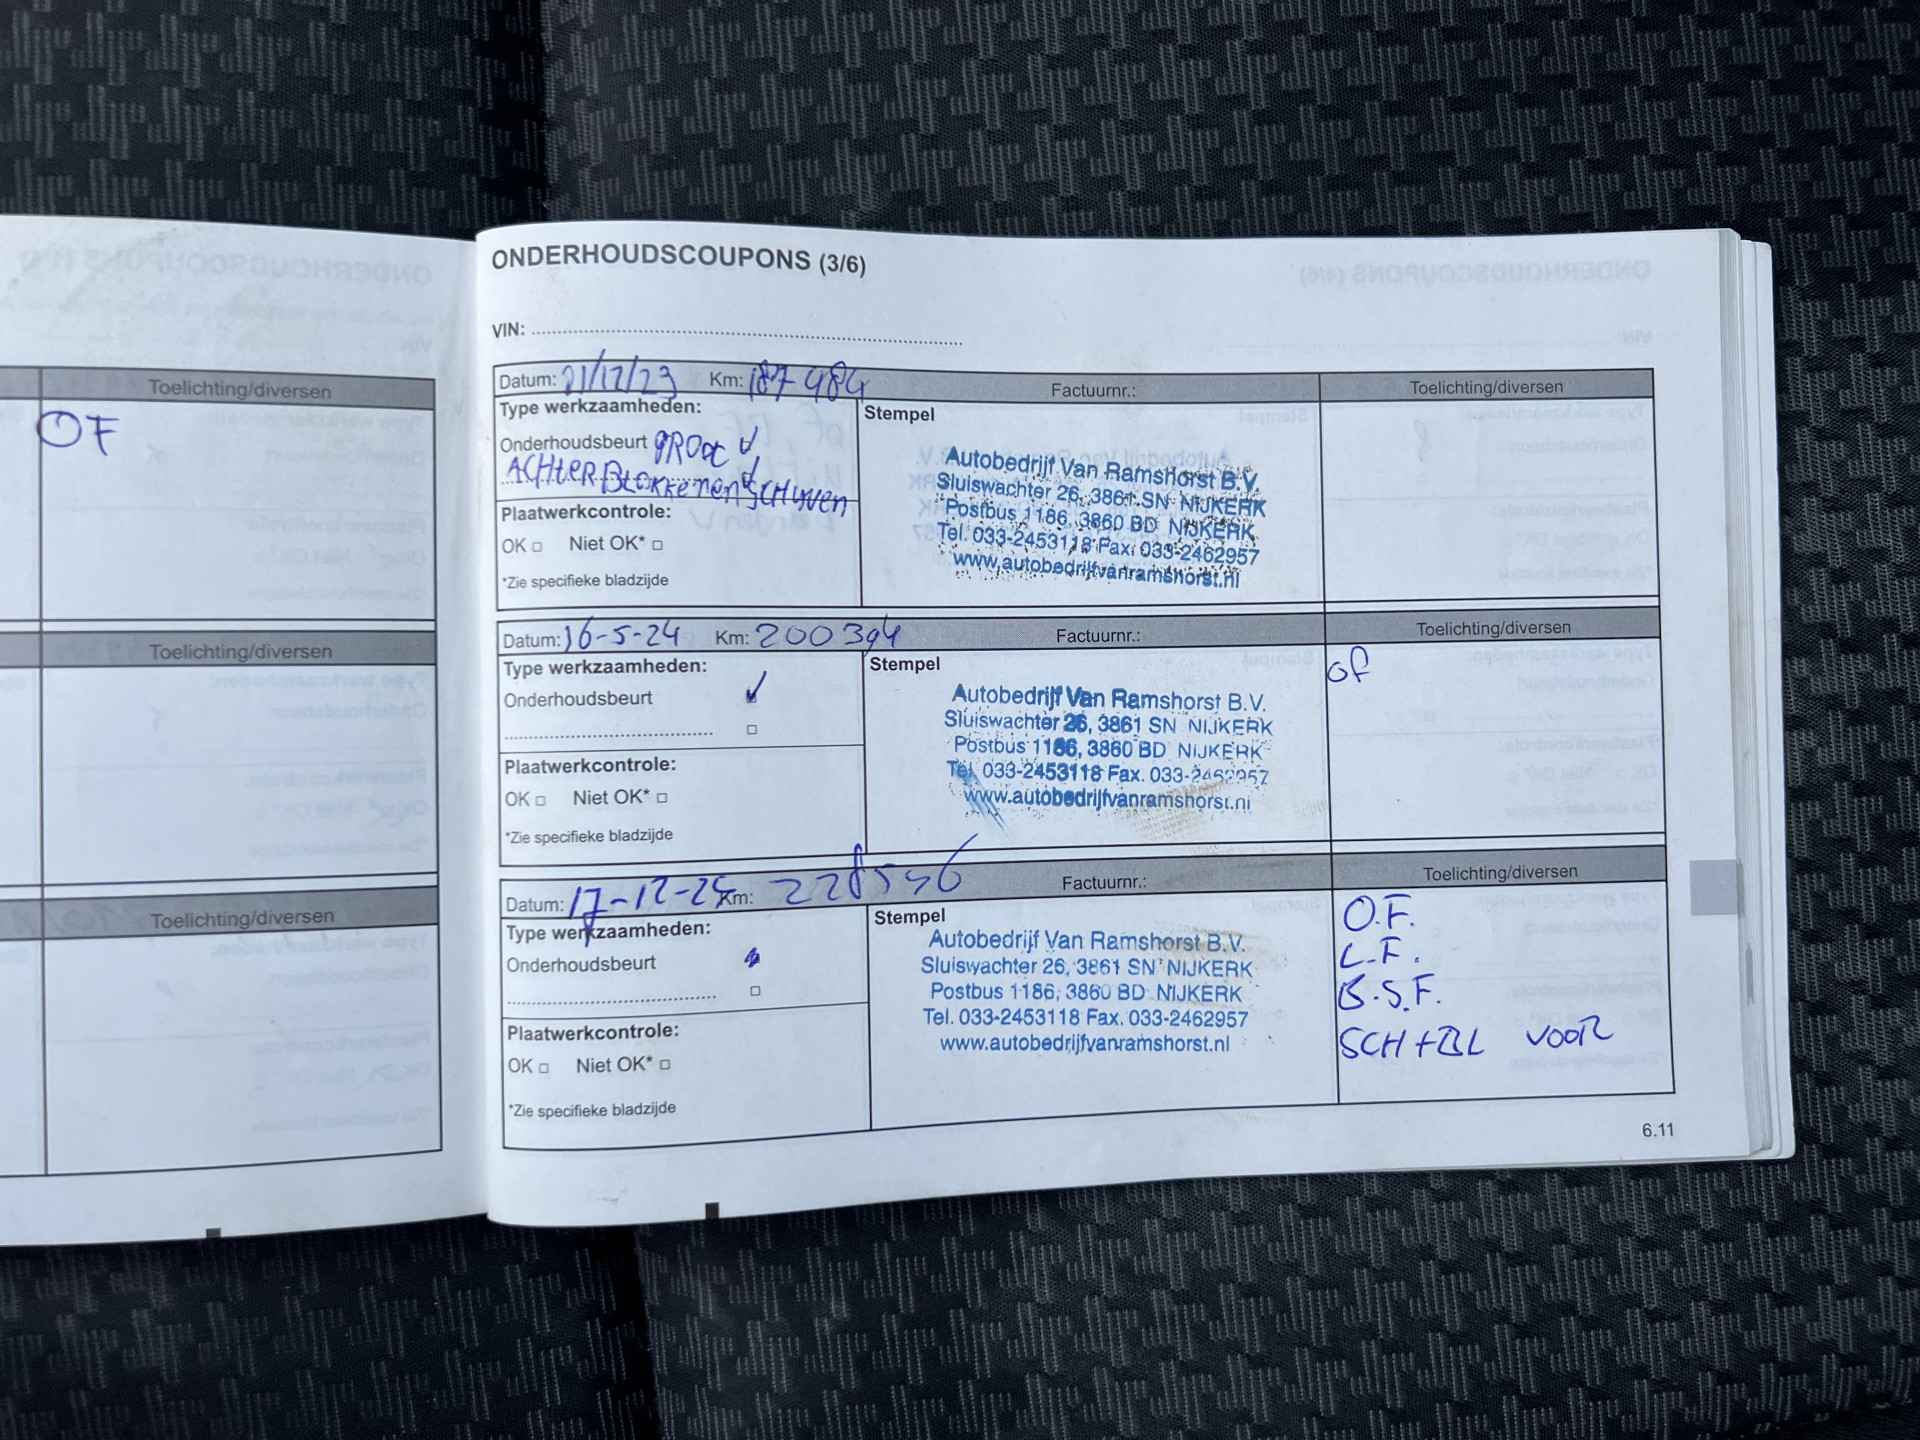 Toelichting/diversen
OF
Toelichting/diversen
Toelichting/diversen
ONDERHOUDSCOUPONS (3/6)
VIN:
Datum: 21/12/23 Km: 187484 Factuurnr.: Toelichting/diversen
Type werkzaamheden: Stempel
Onderhoudsbeurt GROOT
ACHTER BLOKKEN en SCHIJVEN
Plaatwerkcontrole:
OK □ Niet OK* □
*Zie specifieke bladzijde
Autobedrijf Van Ramshorst B.V.
Sluiswachter 26, 3861 SN NIJKERK
Postbus 1186, 3860 BD NIJKERK
Tel. 033-2453118 Fax. 033-2462957
www.autobedrijfvanramshorst.nl
Datum: 16-5-24 Km: 200394 Factuurnr.: Toelichting/diversen
Type werkzaamheden: Stempel
Onderhoudsbeurt
Plaatwerkcontrole:
OK □ Niet OK* □
*Zie specifieke bladzijde
Autobedrijf Van Ramshorst B.V.
Sluiswachter 26, 3861 SN NIJKERK
Postbus 1186, 3860 BD NIJKERK
Tel. 033-2453118 Fax. 033-2462957
www.autobedrijfvanramshorst.nl
of
Datum: 17-12-24 Km: 228546 Factuurnr.: Toelichting/diversen
Type werkzaamheden: Stempel
Onderhoudsbeurt
Plaatwerkcontrole:
OK □ Niet OK* □
*Zie specifieke bladzijde
Autobedrijf Van Ramshorst B.V.
Sluiswachter 26, 3861 SN NIJKERK
Postbus 1186, 3860 BD NIJKERK
Tel. 033-2453118 Fax. 033-2462957
www.autobedrijfvanramshorst.nl
O.F.
L.F.
B.S.F.
SCH+BL VOOR
6.11